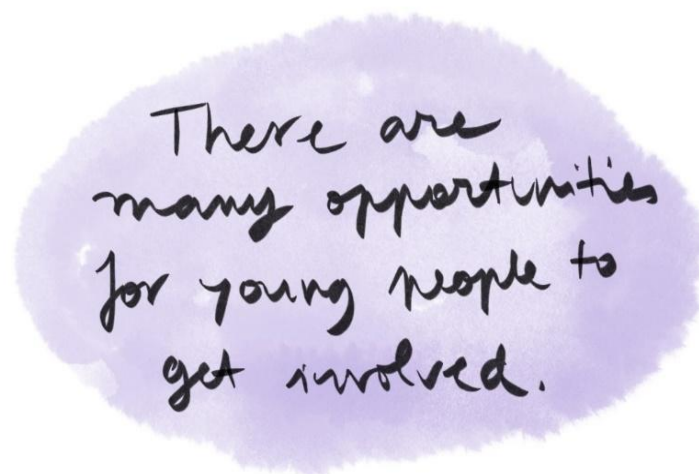 There are
many opportunities
for young people to
get involved.